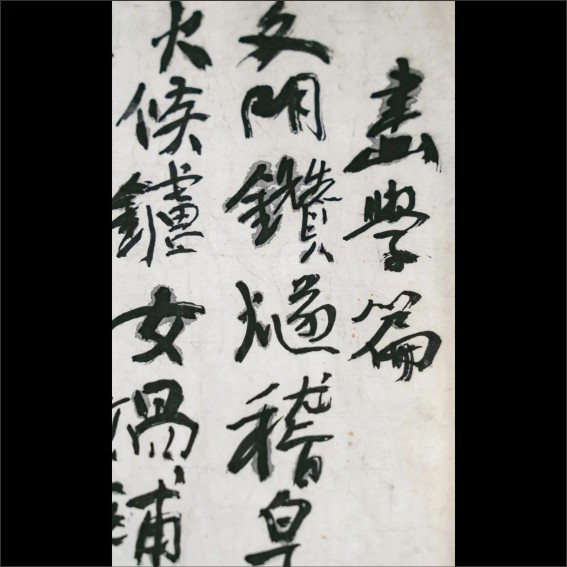 畫學篇
爻開鑽燧稽皇
火候鑪女媧補